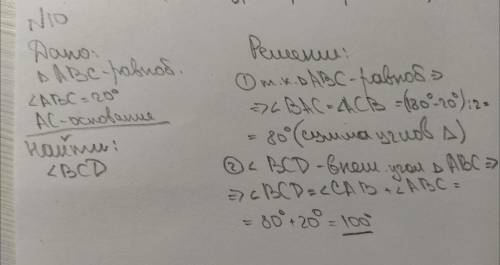 N10
Дано:
△ABC-равноб.
∠ABC=20°
AC-основание
Найти:
∠BCD
Решение:
① т.к. △ABC-равноб ⇒
⇒ ∠BAC=∠ACB =(180°-20°):2=
= 80° (сумма углов △)
② ∠ BCD-внеш. угол △ABC ⇒
⇒ ∠BCD=∠CAB + ∠ABC =
= 80° + 20° = 100°